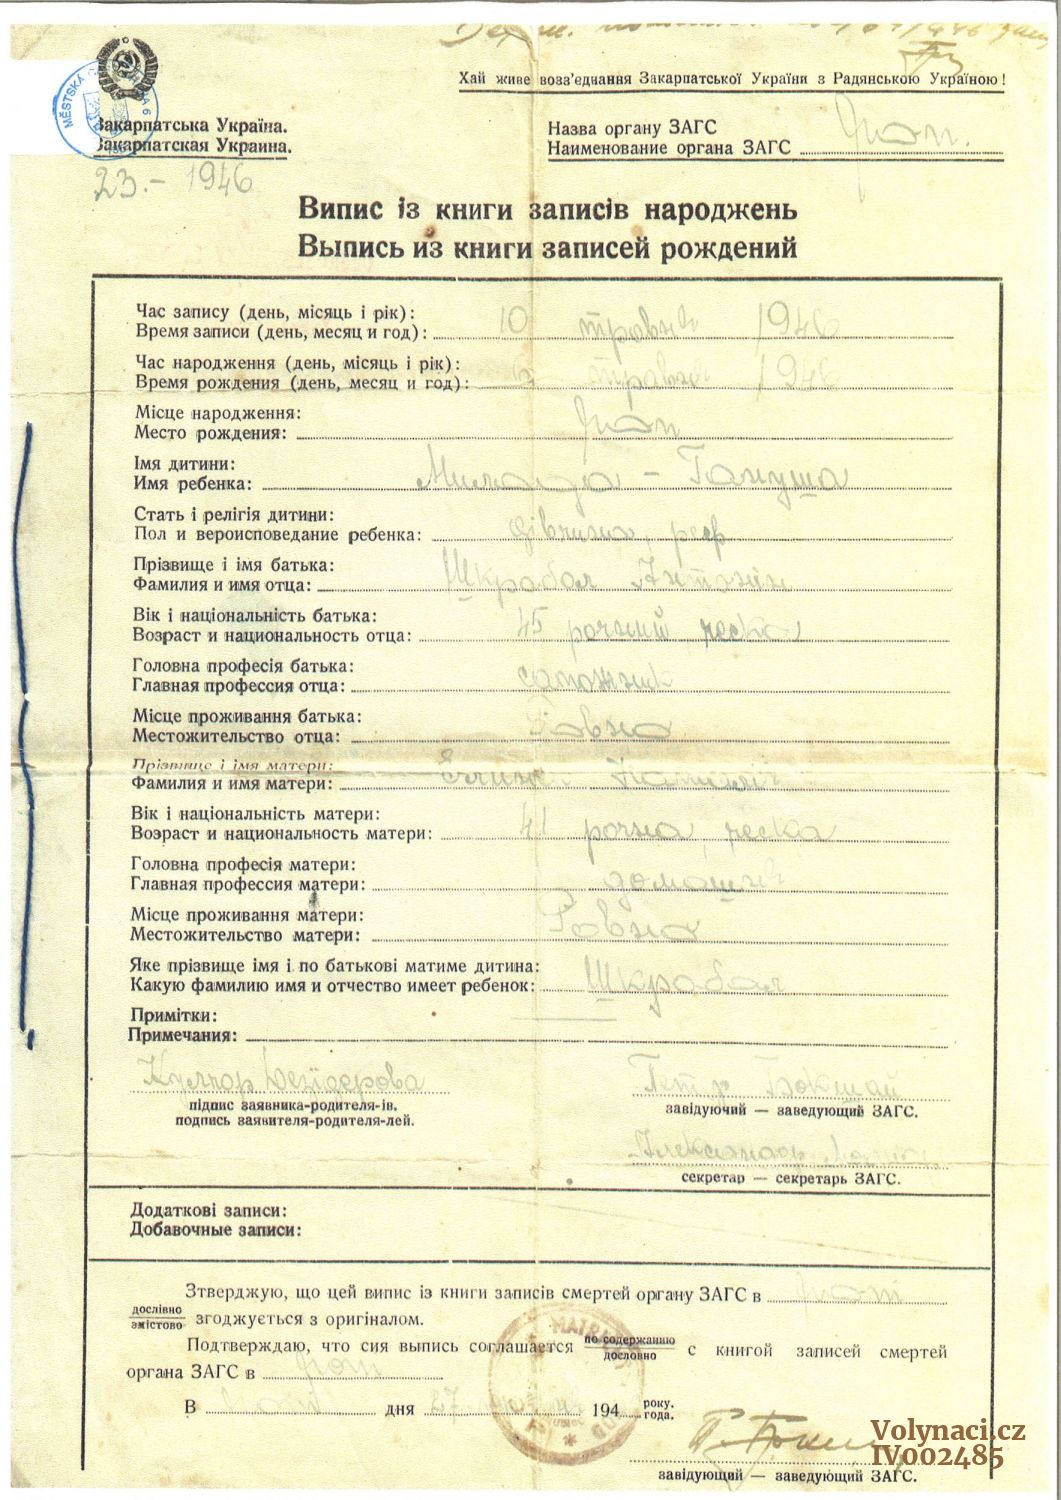 Хай живе возз'єднання Закарпатської України з Радянською Україною!
MĚSTSKÁ
Закарпатська Україна.
Закарпатская Украина.
Назва органу ЗАГС
Наименование органа ЗАГС
23.- 1946
Випис із книги записів народжень
Выпись из книги записей рождений
Час запису (день, місяць і рік):
Время записи (день, месяц и год): 10 травня 1946
Час народження (день, місяць і рік):
Время рождения (день, месяц и год): травня 1946
Місце народження:
Место рождения:
Імя дитини:
Имя ребенка: - Гануша
Стать і релігія дитини:
Пол и вероисповедание ребенка: дівчина, реф
Прізвище і імя батька:
Фамилия и имя отца: Шкрабал Антонін
Вік і національність батька:
Возраст и национальность отца: 45 рочний, ческа
Головна професія батька:
Главная профессия отца: сапожник
Місце проживання батька:
Местожительство отца: Ровно
Прізвище і імя матери:
Фамилия и имя матери:
Вік і національність матери:
Возраст и национальность матери: 41 рочна, ческа
Головна професія матери:
Главная профессия матери: домашня
Місце проживання матери:
Местожительство матери: Ровно
Яке прізвище імя і по батькові матиме дитина:
Какую фамилию имя и отчество имеет ребенок: Шкрабал
Примітки:
Примечания:
підпис заявника-родителя-ів.
подпись заявителя-родителя-лей.
Петр Бокшай
завідуючий — заведующий ЗАГС.
Александр
секретар — секретарь ЗАГС.
Додаткові записи:
Добавочные записи:
Зтверджую, що цей випис із книги записів смертей органу ЗАГС в
дослівно
змістово згоджується з оригіналом.
Подтверждаю, что сия выпись соглашается по содержанию
дословно с книгой записей смертей
органа ЗАГС в
В дня 27 194 року.
года.
завідующий — заведующий ЗАГС.
Volynaci.cz
IV002485